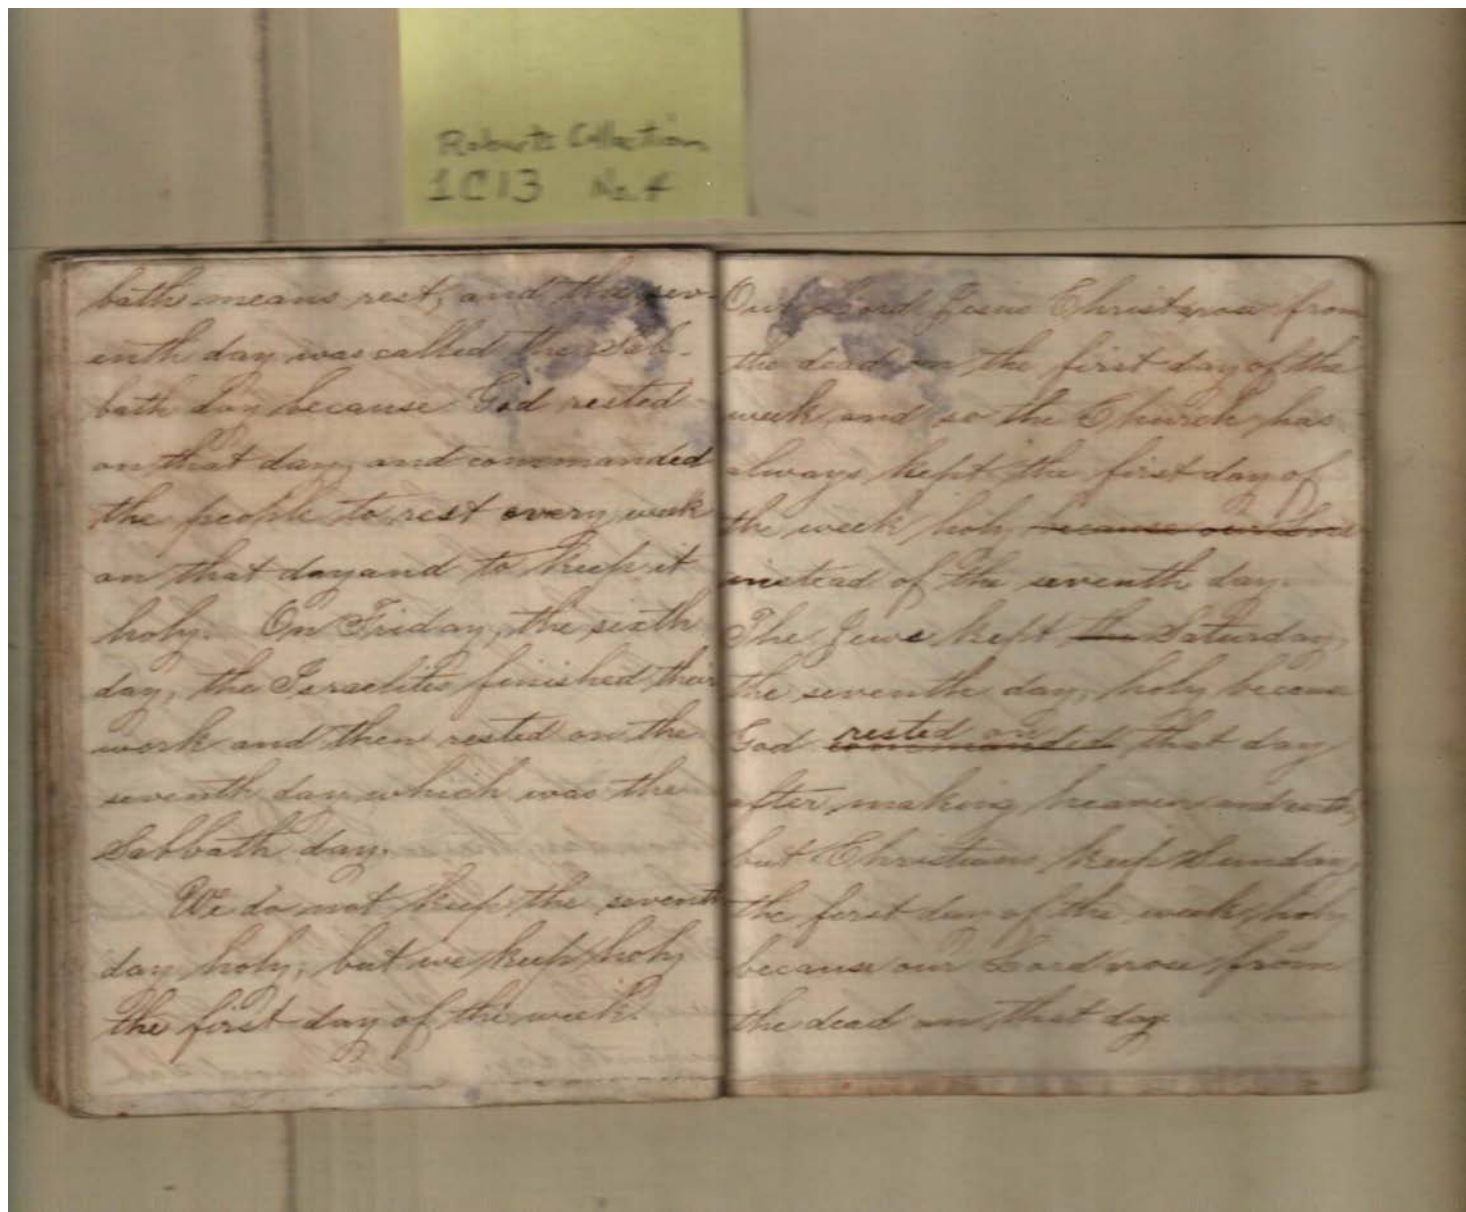 Roberts Collection
1C13 No. 4
bath means rest, and the sev-
enth day was called the Sab-
bath day because God rested
on that day, and commanded
the people to rest every week
on that day and to keep it
holy. On Friday, the sixth
day, the Israelites finished their
work and then rested on the
seventh day which was the
Sabbath day.
We do not keep the seventh
day holy, but we keep holy
the first day of the week.
Our Lord Jesus Christ rose from
the dead on the first day of the
week and so the Church has
always kept the first day of
the week holy because our Lord
instead of the seventh day.
The Jews kept the Saturday,
the seventh day, holy because
rested on
God commanded that day
after making heaven and earth,
but Christians keep Sunday,
the first day of the week, holy
because our Lord rose from
the dead on that day